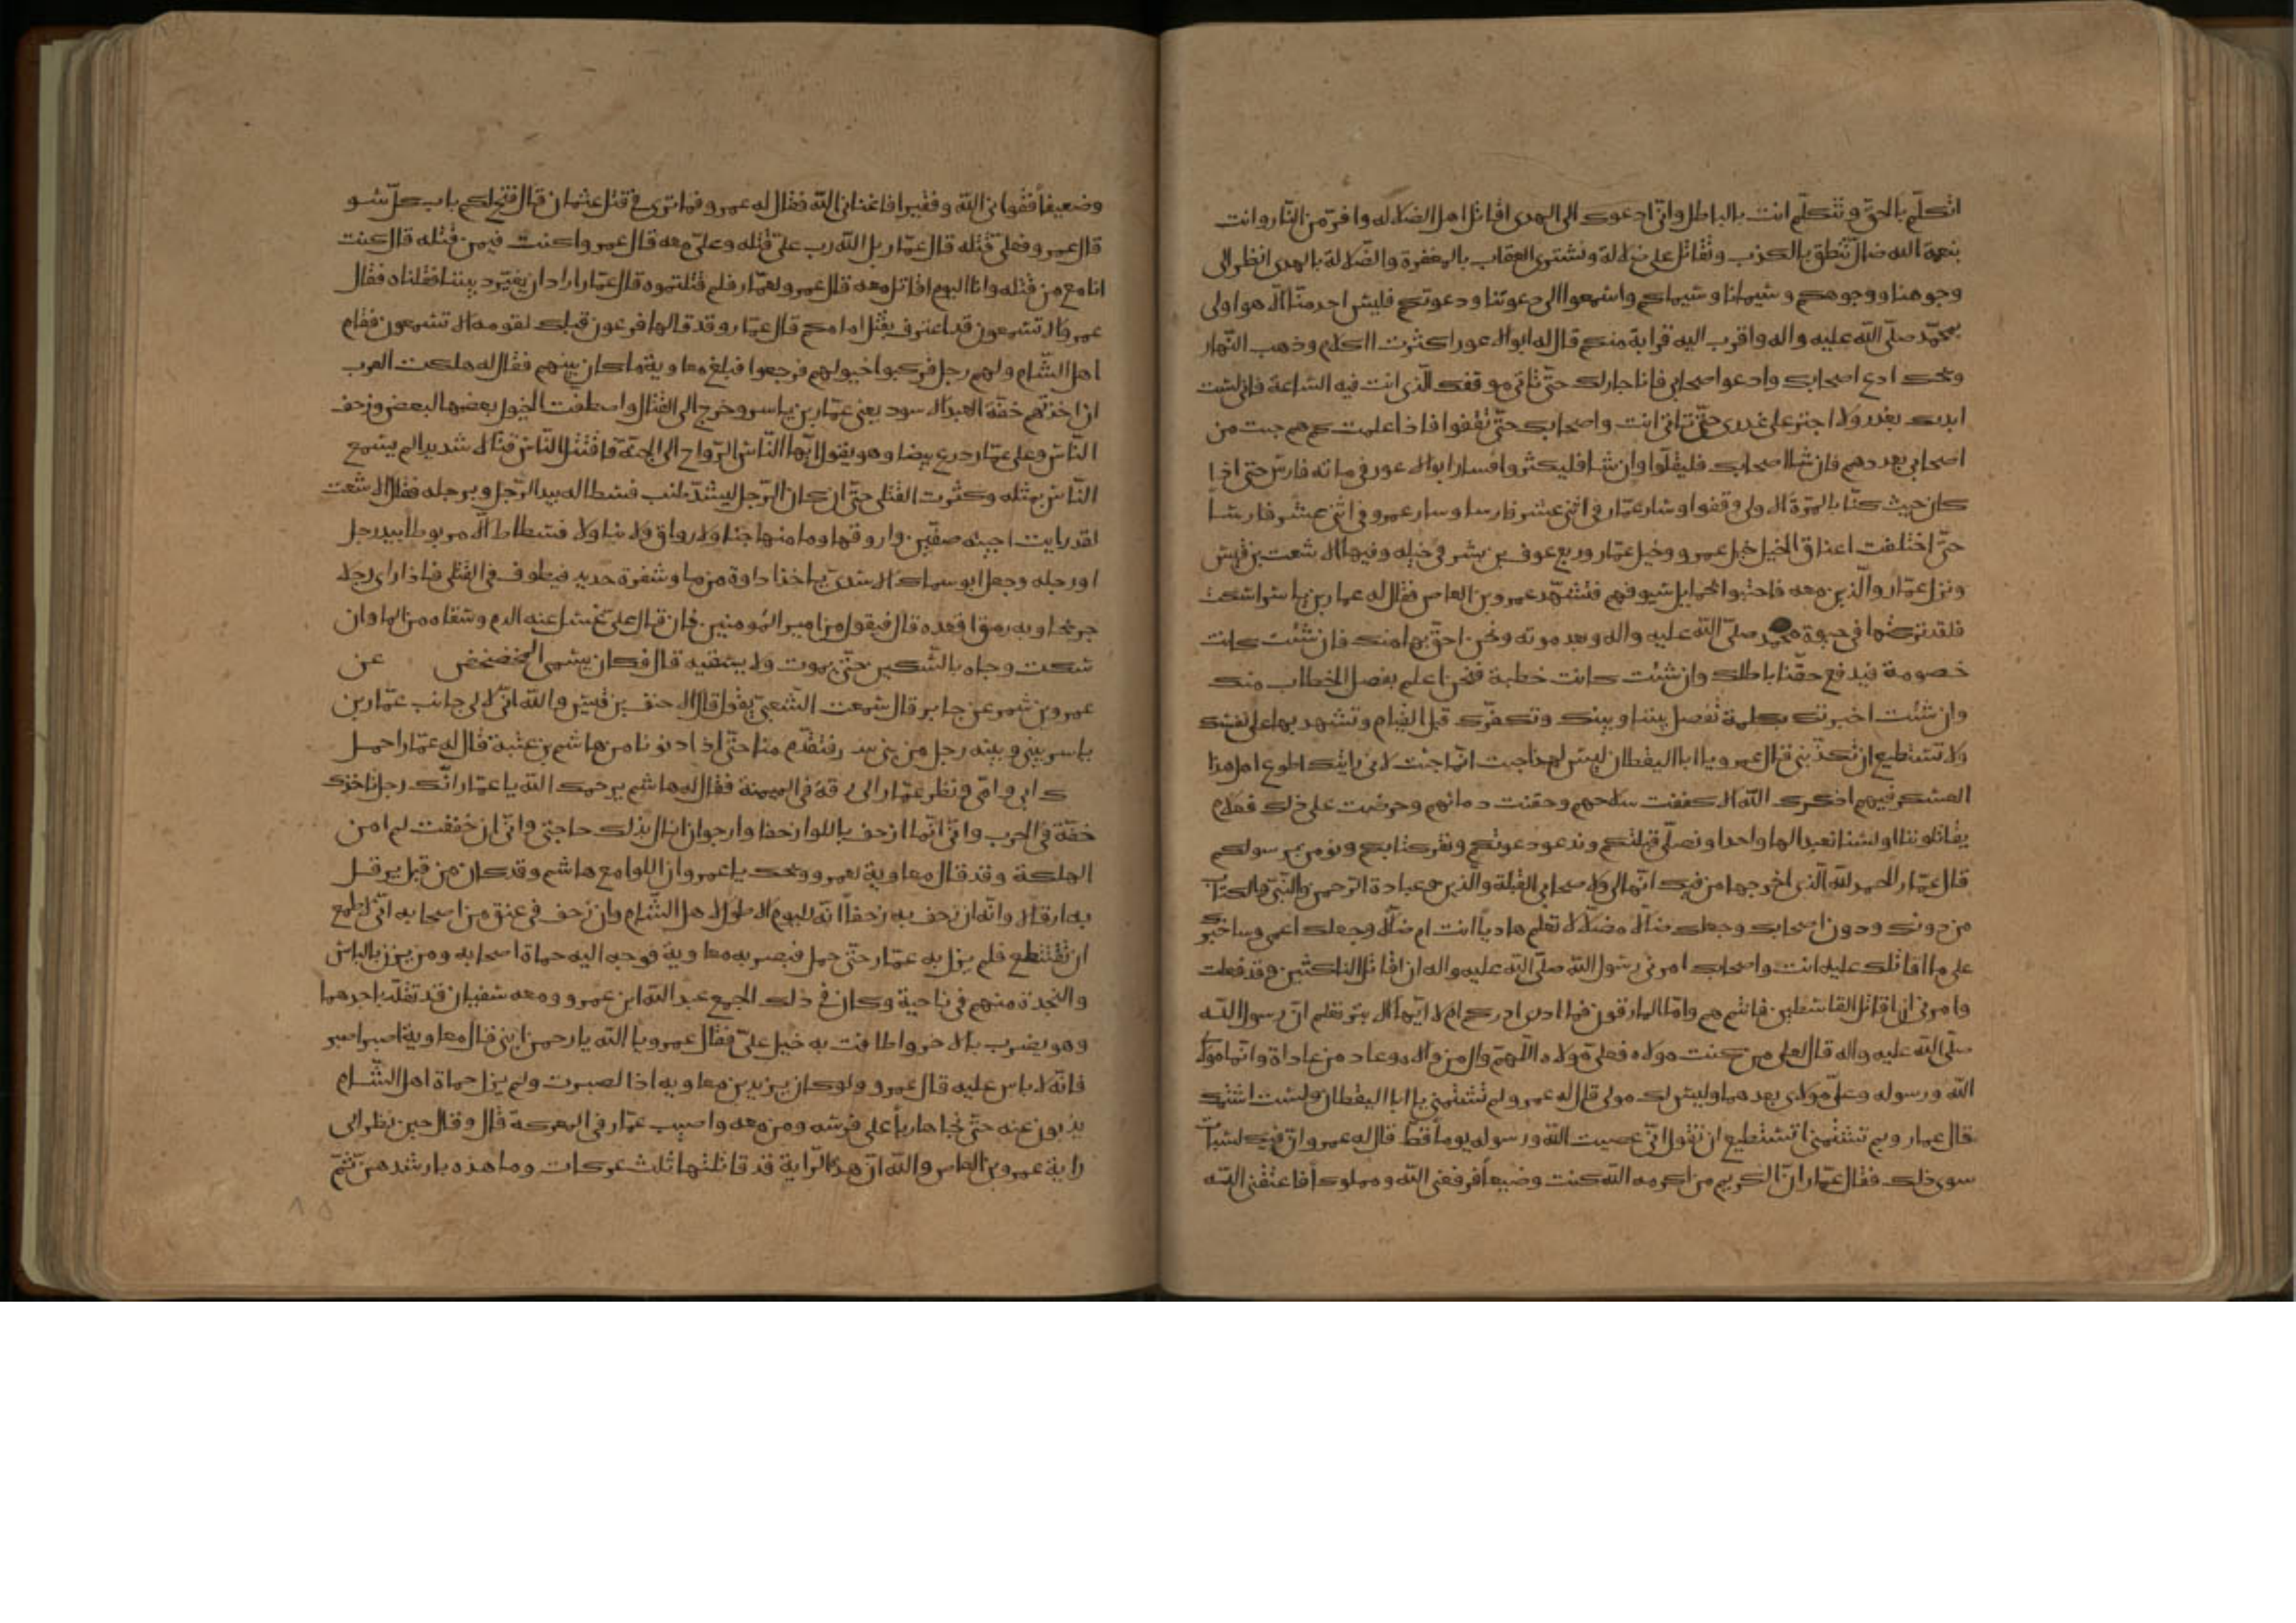 اتكلّم بالحقّ وتتكلّم انت بالباطل وانّى ادعوك الى الهدى اقاتل اهل الضلاله وافرّ من النّار وانت
بنعمة الله ضالّ تنطق بالكذب وتقاتل على ضلالة وتشترى العقاب بالمغفرة والضّلالة بالهدى انظر الى
وجوهنا ووجوهكم وسيمانا وسيماكم واسمعوا الى دعوتنا ودعوتكم فليس احد منّا الّا هو اولى
بمحمّد صلّى الله عليه واله واقرب اليه قرابة منكم قال له ابو الاعور اكثرت الكلام وذهب النّهار
ويحك ادع اصحابك وادعو اصحابى فانا جارلك حتّى تاتى موقفك الّذى انت فيه السّاعة فانى لست
ابدك بغدر ولا اجترى على غدرى حتّى تاتى انت واصحابك حتّى تقفوا فاذا علمت كم هم جيت من
اصحابى بعددهم فان شا اصحابك فليقلّوا وان شا فليكثروا فسار ابو الاعور فى مائه فارس حتى اذا
كان حيث كنّا بالمرّة الاولى وقفوا وسار عمّار فى اثنى عشر فارسا وسار عمرو فى اثنى عشر فارساً
حتّى اختلفت اعناق الخيل خيل عمرو وخيل عمّار ورجع عوف بن بشر فى خيله وفيها الاشعث بن قيس
ونزل عمّار والّذين معه فاحتبوا بحمايل سيوفهم فتشهّد عمرو بن العاص فقال له عمار بن ياسر اسكت
فلقد تركتها فى حيوة محمد صلّى الله عليه واله وبعد موته ونحن احقّ بها منك فان شئت كانت
خصومة فيدفع حقّنا باطلك وان شئت كانت خطبة فنحن اعلم بفصل الخطاب منك
وان شئت اخبرتك بكلمة تفصل بيننا وبينك وتكفّرك قبل القيام وتشهد بها على نفسك
ولا تستطيع ان تكذّبنى قال عمرو يا ابا اليقظان ليس لهذا جيت انّما جيت لانّى رايتك اطوع اهل هذا
العسكر فيهم اذكرك الله الا كففت سلاحهم وحقنت دمائهم وحرضت على ذلك فعلام
يقاتلوننا اولسنا نعبد الها واحدا ونصلّى قبلتكم وندعو دعوتكم ونقر كتابكم ونومن برسولكم
قال عمّار الحمد لله الّذى اخرجها من فيك انّها لى ولاصحابى القبلة والدّين وعبادة الرّحمن والنّبى والكتاب
من دونك ودون اصحابك وجعلك ضالّا مضلّا لا تعلم هاديا انت ام ضالّ وجعلك اعمى وساخبرك
على ما اقاتلك عليه انت واصحابك امرنى رسول الله صلّى الله عليه واله ان اقاتل النّاكثين وقد فعلت
وامرنى ان اقاتل القاسطين فانتم هم وامّا المارقون فما ادرى ادركهم ام لا ايّها الابتر تعلم انّ رسول الله
صلّى الله عليه واله قال لعلى من كنت مولاه فعلىّ مولاه اللّهمّ وال من والاه وعاد من عاداه وانا مولا
الله ورسوله وعلىّ مولاى بعدهما وليس لك مولى قال له عمرو لم تشتمنى يا ابا اليقظان ولست اشتمك
قال عمار وبم تشتمنى اتستطيع ان تقول انّى عصيت الله ورسوله يوماً قطّ قال له عمرو انّ فيك لسبات
سوى ذلك فقال عمّار انّ الكريم من اكرمه الله كنت وضيعاً فرفعنى الله ومملوكاً فاعتقنى الله
وضعيفاً فقوانى الله وفقيراً فاغنانى الله فقال له عمرو فما ترى فى قتل عثمان قال فتح لكم باب كلّ سو
قال عمرو فعلىّ قتله قال عمّار بل الله رب علىّ قتله وعلىّ معه قال عمرو اكنت فيمن قتله قال كنت
انا مع من قتله وانا اليوم اقاتل معه قال عمرو لعمّار فلم قتلتموه قال عمّار اراد ان يغيّر ديننا فقتلناه فقال
عمرو الا تسمعون قد اعترف بقتل امامكم قال عمّار وقد قالها فرعون قبلك لقومه الا تسمعون فقام
اهل الشّام ولهم زجل فركبوا خيولهم فرجعوا فبلغ معاوية ما كان بينهم فقال له هلكت العرب
ان اخذتهم خفّة العبد الاسود يعنى عمّار بن ياسر وخرج الى القتال واصطفت الخيول بعضها لبعض وزحف
النّاس وعلى عمّار درع بيضا وهو يقول ايّها النّاس الرّواح الى الجنّة فاقتتل النّاس قتالا شديدا لم يسمع
النّاس بمثله وكثرت القتلى حتّى ان كان الرّجل ليشدّ طنب فسطاطه بيد الرّجل وبرجله فقال الاشعث
لقد رايت اخبيه صفّين واروقتها وما منها خبا ولا رواق ولا بنا ولا فسطاط الّا مربوطا بيد رجل
او رجله وجعل ابو سماك الاسدىّ ياخذ اداوة من ما وشفرة حديد فيطوف فى القتلى فاذا راى رجلا
جريحا وبه رمق اقعده قال فيقول من امير المومنين فان قال علىّ غسل عنه الدم وسقاه من الما وان
سكت وجاه بالسّكين حتّى يموت ولا يسقيه قال فكان يسمى المخضخض عن
عمرو بن شمر عن جابر قال سمعت الشّعبىّ يقول قال الاحنف بن قيس والله انّى لالى جانب عمّار بن
ياسر بينى وبينه رجل من بنى فتقدّم منا حتّى اذا دنونا من هاشم بن عتبة قال له عمّار احمل
ك ابى وامّى ونظر عمّار الى رقة فى الميمنة فقال له هاشم يرحمك الله يا عمّار انّك رجل تاخذك
خفّة فى الحرب وانّى انّما ازحف باللوا زحفا وارجو ان انال بذلك حاجتى وانّى ان خففت لم امن
الهلكة وقد قال معاوية لعمرو ويحك يا عمرو ان اللوا مع هاشم وقد كان من قبل يرقل
به ارقالا وانّه ان زحف به زحفاً انّه لليوم الاطول لاهل الشّام وان زحف فى عنق من اصحابه انّى لاطمع
ان تقتطع فلم يزل به عمّار حتّى حمل فبصر به معاوية فوجه اليه حماة اصحابه ومن يزن بالباس
والنجدة منهم فى ناحية وكان فى ذلك الجمع عبد الله ابن عمرو ومعه سفيان قد تقلّد باحدهما
وهو يضرب بالاخر واطافت به خيل علىّ فقال عمرو يا الله يا رحمن ابنى قال معاوية اصبر اصبر
فانّه لا باس عليه قال عمرو ولو كان يزيد بن معاويه اذا لصبرت ولم يزل حماة اهل الشّام
يذبون عنه حتّى نجا هارباً على فرسه ومن معه واصيب عمّار فى المعركة قال وقال حين نظر الى
راية عمرو بن العاص والله انّ هذه الرّاية قد قاتلتها ثلث عركات وما هذه بارشدهنّ ثمّ